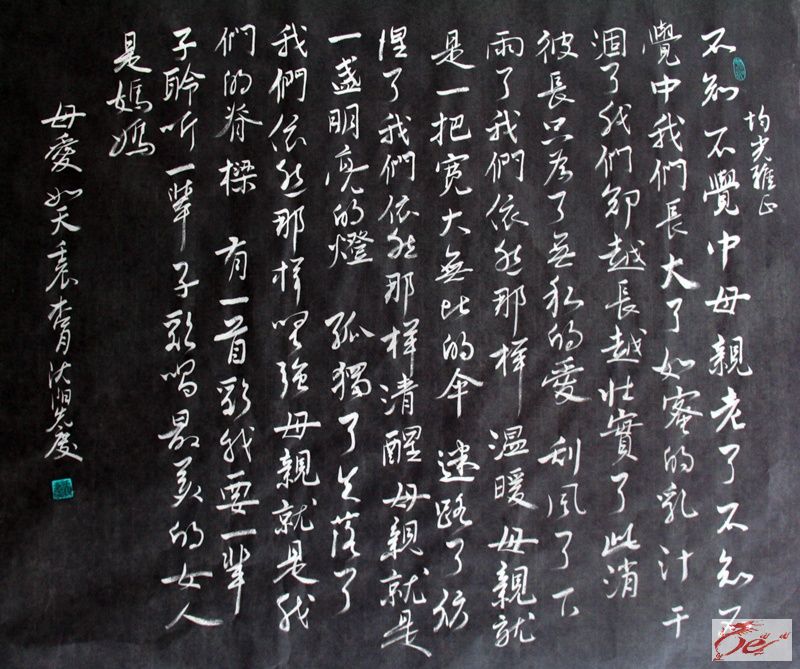 均光雅正
不知不覺中母親老了不知不
覺中我們長大了如蜜的乳汁干
涸了我們卻越長越壯實了此消
彼長只为了無私的愛 刮風了下
雨了我們依然那樣溫暖母親就
是一把宽大無比的伞 迷路了彷
惶了我們依然那樣清醒母親就是
一盞明亮的燈 孤獨了失落了
我們依然那樣堅強母親就是我
們的脊樑 有一首歌我要一輩
子聆听一輩子歌唱最美的女人
是媽媽
母愛如天